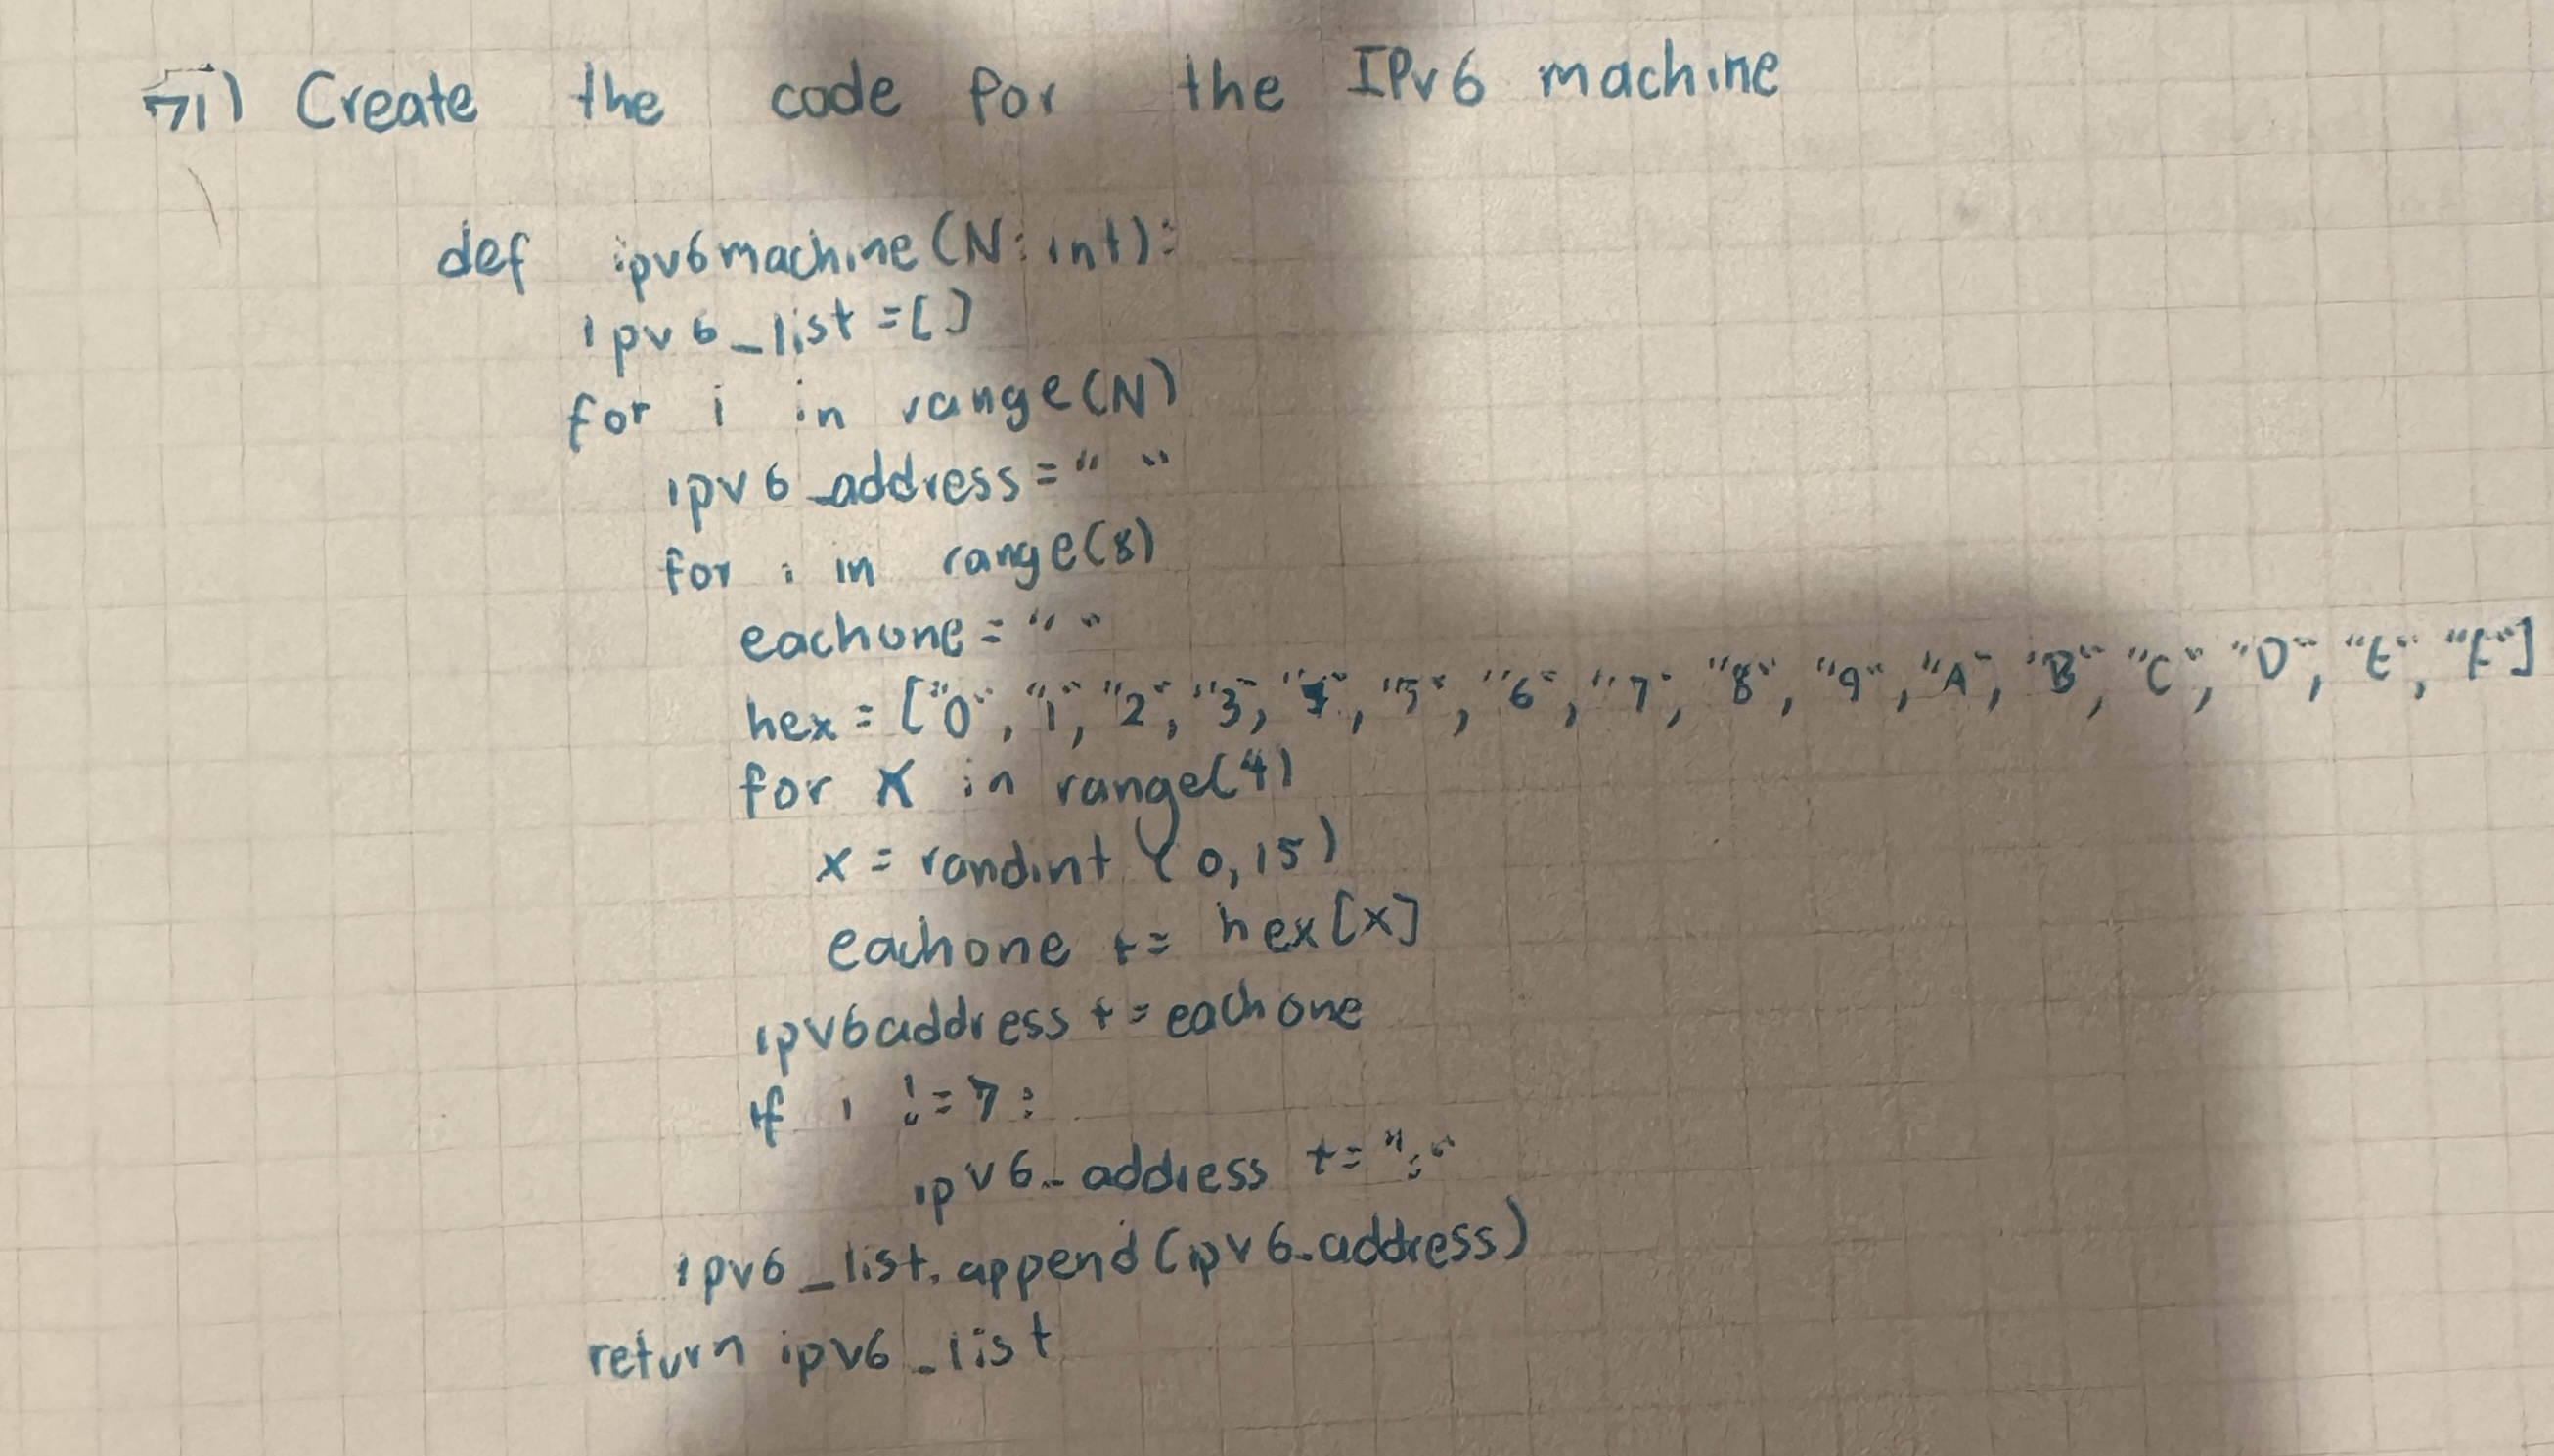 71) Create the code for the IPv6 machine
def ipv6machine(N: int):
ipv6_list =[]
for i in range(N)
ipv6_address=" "
for i in range(8)
eachone = " "
hex = ["0", "1", "2", "3", "4", "5", "6", "7", "8", "9", "A", "B", "C", "D", "E", "F"]
for x in range(4)
x = randint (0,15)
eachone += hex[x]
ipv6address += eachone
if i != 7:
ipv6_address += ":"
ipv6_list.append(ipv6_address)
return ipv6_list